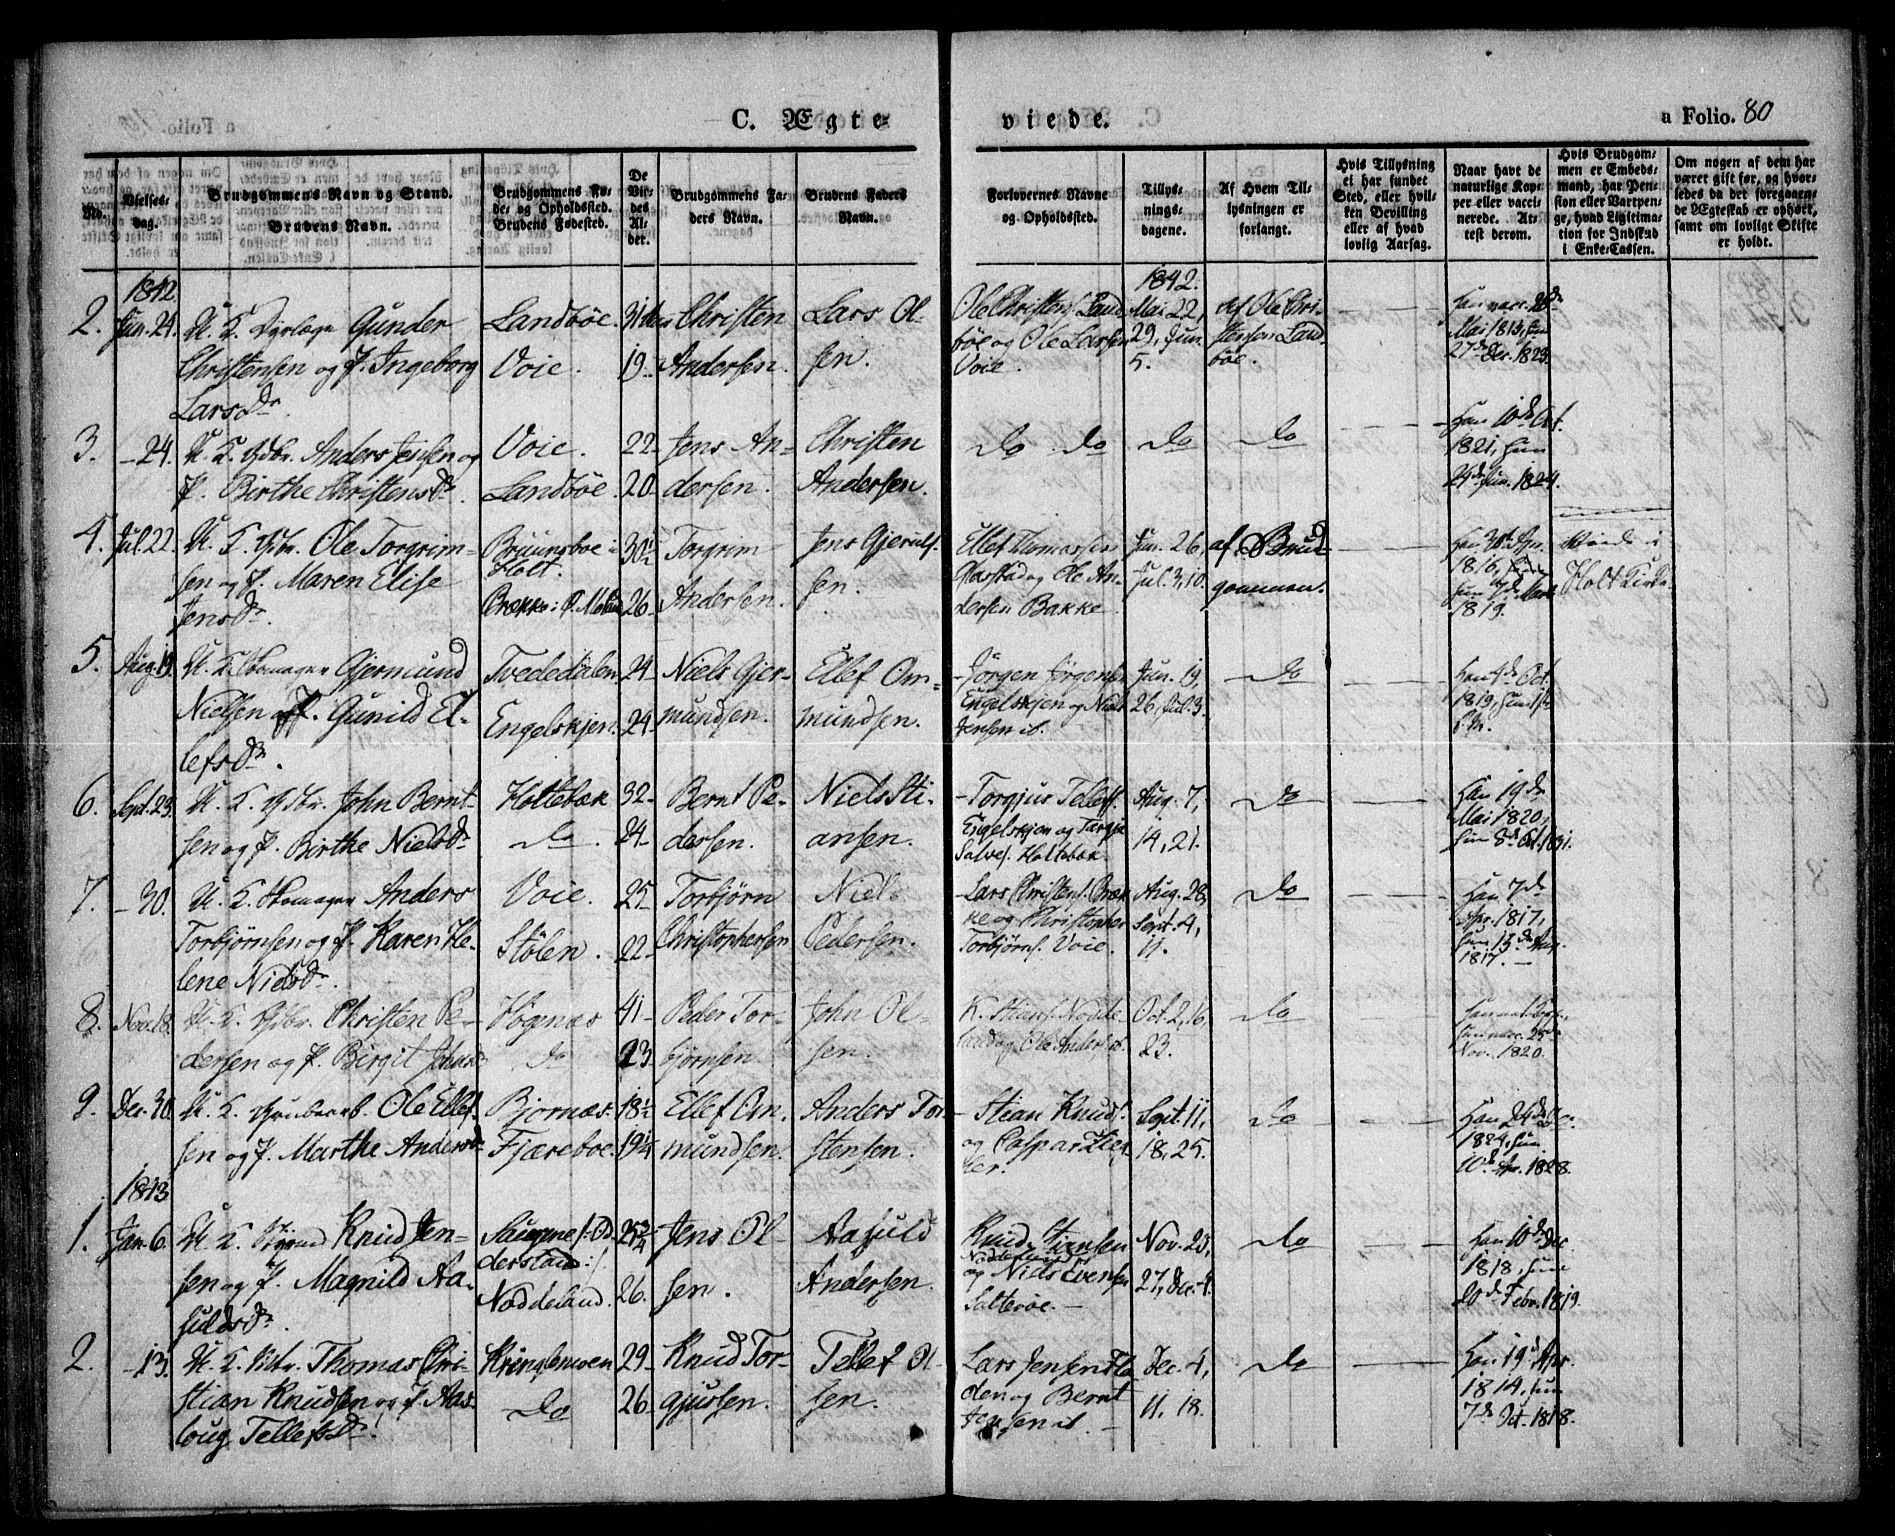 C. Ægte=
viede.
a Folio. 80
No.
Vielses=
dag.
Brudgommens Navn og Stand.
Brudens Navn.
Brudgommens Fø=
de= og Opholdssted.
Brudens Fødested.
De
Vie=
des
Al=
der.
Brudgommens Fa=
ders Navn.
Brudens Faders
Navn.
Forlovernes Navne
og Opholdssted.
Tillys=
nings=
dagene.
Af Hvem Til=
lysningen er
forlangt.
Hvis Tillysning
ei har fundet
Sted, eller hvil=
ken Bevilling
eller af hvad
lovlig Aarsag.
Naar havt de
naturlige Kop=
per eller vacci=
nerede. At=
test derom.
Hvis Brudgom=
men er Embeds=
mand, har Pen=
sion eller Vartpen=
ge, hvad Ligitima=
tion for Indskud
i Enke=Cassen.
Om nogen af dem har
været gift før, og hvor=
ledes da det foregaaen=
de Ægteskab er ophørt,
samt om lovligt Skifte
er holdt.
1842
2. Jun. 24. U. K. Gunder
Christensen og P. Ingeborg
Lars Dr.
Landböe. Voie.
19
Christen
Andersen.
Lars Ol-
sen.
Ole Christens. Land-
böe og Ole Larsen
Voie.
1842.
Mai 22,
29, Jun.
5.
af Ole Chri-
stensen Land-
böe.
Mai 1813, hun
27de Dec. 1823.
3. - 24. U. K. Gdbr. Anders Jensen og
P. Birthe Christens Dr.
Voie.
Landböe.
22
20
Jens An-
dersen.
Christen
Andersen.
do do do do
Han 10de Oct.
1821, hun
24de Jun. 1824.
4. Jul. 22. U. K. Gdbr. Ole Torgrim-
sen og P. Maren Elise
Jens Dr.
Bruunsboe i
Holt.
30½
26
Torgrim
Andersen.
Jens Gjeruls-
sen.
Ellef Thomassen
og Ole An-
dersen Bakke.
Jun. 26,
Jul. 3, 10.
af Brud-
gommen.
Han 30te Apr.
1816,
hun 7de Marts
1819.
Viede i
Holt Kirke.
5. Aug. 19. U. K. Skomager Gjermund
Nielsen og P. Gunild El-
lefs Dr.
Tvededalen
Engelskjen.
24
24
Niels Gjer-
mundsen.
Ellef Om-
mundsen.
Jörgen Jörgensen
Engelskjen og Niels
Jensen ib.
Jun. 19,
26, Jul. 3.
do
Han 4de Oct.
1819, hun
6. Sept. 23. U. K. Gdbr. John Bernt-
sen og P. Birthe Niels Dr.
Holtebæk
do.
32
24
Bernt Pe-
dersen.
Niels Sti-
ansen.
Torgjus Tellefs.
Engelskjen og Targje
Salves. Holtebæk.
Aug. 7,
14, 21.
do
Han 19de
Mai 1820,
hun 8de Oct. 1831.
7. - 30. U. K. Skomager Anders
Torbjörnsen og P. Karen He-
lene Niels Dr.
Voie.
Stölen.
25
22
Torbjörn
Christophersen
Niels
Pedersen.
Lars Christens. Bræk-
ke og Christopher
Torbjörns. Voie.
Aug. 28,
Sept. 4,
11.
do
Han 7de
Apr. 1817,
hun 13de Aug.
1817.
8. Nov. 18. U. K. Gdbr. Christen Pe-
dersen og P. Birgit Johns Dr.
Högenæs
do
41
23
Peder Tor-
björnsen.
John Ol-
sen.
K. Stians. Nodde-
land og Ole Anders. ib.
Oct. 2, 16,
23.
do
hun vacc. 25de
Nov. 1820.
9. Dec. 30. U. K. Grubearb. Ole Ellef-
sen og P. Marthe Anders Dr.
Bjornæs.
Fjæreboe.
18½
19¼
Ellef Om-
mundsen.
Anders Tor-
stensen.
Stian Knuds.
og Caspar
Sept. 11,
18, 25.
do
Han 24de
1824, hun
10de Apr. 1828.
1843
1. Jan. 6. U. K. Knud Jen-
sen og P. Magnild Aa-
sulds Dr.
Noddeland.
25¾
26.
Jens Ol-
sen.
Aasuld
Andersen.
Knud Stiansen
Noddeland
og Niels Evensen
Salteröe.
Nov. 23,
27, Dec. 4.
do
Han 10de Dec.
1818, hun
20de Febr. 1819.
2. - 13. U. K. Thomas Chri-
stian Knudsen og P. Aas-
loug Tellefs Dr.
Kringlemoen
do
29
26
Knud Tor-
gjussen.
Tellef Ol-
sen.
Lars Jensen Flo-
den og Bernt
Jensen ib.
Dec. 4,
11, 18.
do
Han 19de Apr.
1814, hun
7de Oct. 1818.